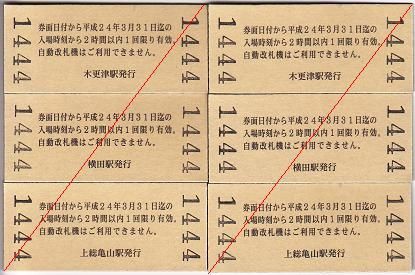 1444
券面日付から平成24年3月31日迄の
入場時刻から2時間以内1回限り有効。
自動改札機はご利用できません。
木更津駅発行
1444
1444
券面日付から平成24年3月31日迄の
入場時刻から2時間以内1回限り有効。
自動改札機はご利用できません。
木更津駅発行
1444
1444
券面日付から平成24年3月31日迄の
入場時刻から2時間以内1回限り有効。
自動改札機はご利用できません。
横田駅発行
1444
1444
券面日付から平成24年3月31日迄の
入場時刻から2時間以内1回限り有効。
自動改札機はご利用できません。
横田駅発行
1444
1444
券面日付から平成24年3月31日迄の
入場時刻から2時間以内1回限り有効。
自動改札機はご利用できません。
上総亀山駅発行
1444
1444
券面日付から平成24年3月31日迄の
入場時刻から2時間以内1回限り有効。
自動改札機はご利用できません。
上総亀山駅発行
1444